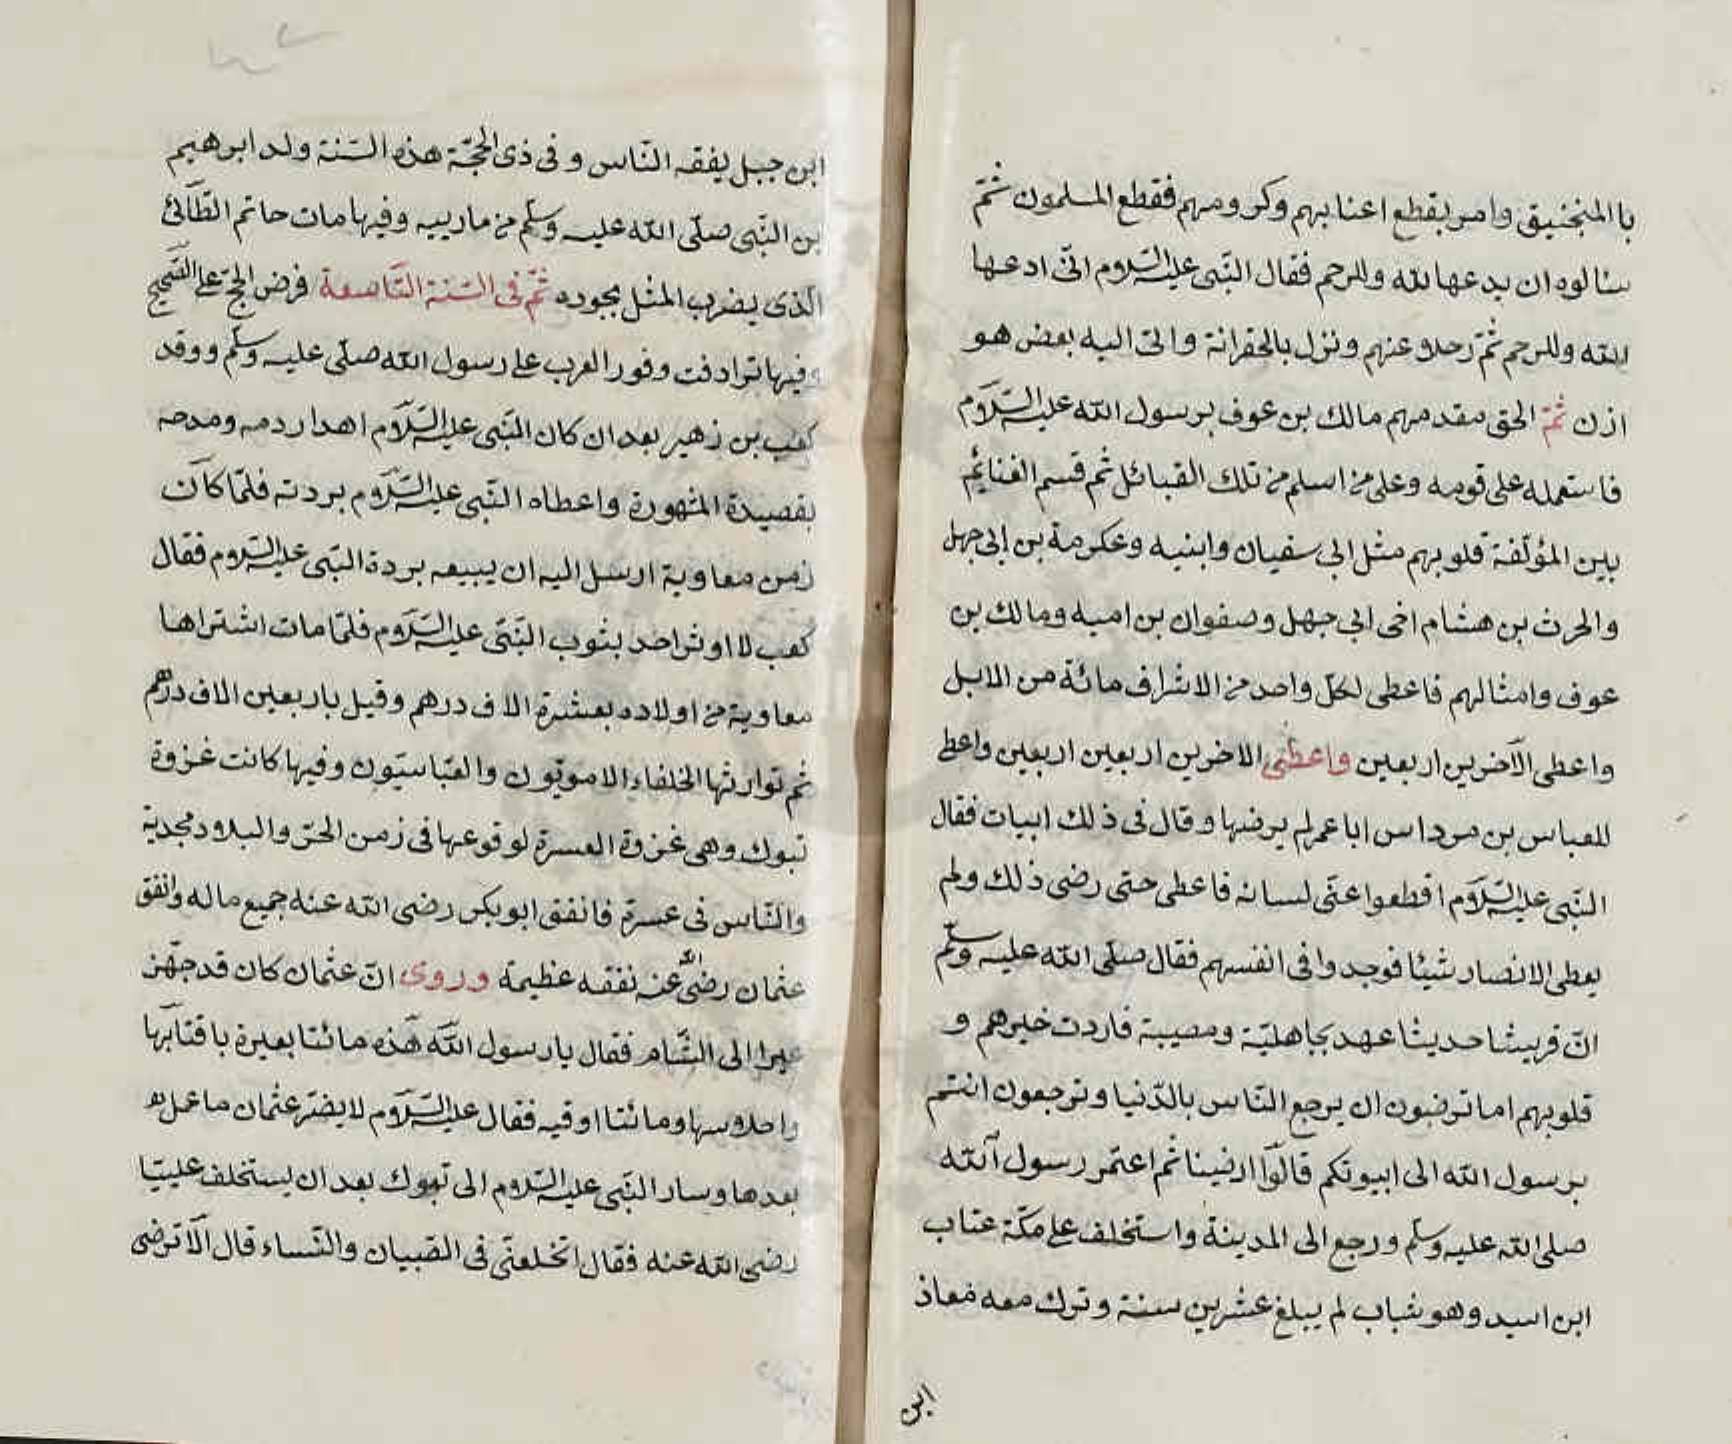 با المنجنيق وامر بقطع اعنابهم وكرومهم فقطع المسلمون ثمّ
سٔالوه ان يدعها لله وللرحم فقال النّبى عليه السّلام انّى ادعها
لله وللرحم ثمّ رحلو عنهم ونزل بالجعرانة واتى اليه بعض هو
ازن ثمّ الحق مقدمهم مالك بن عوف برسول الله عليه السّلام
فاستعمله على قومه وعلى من اسلم من تلك القبائل ثم قسم الغنايم
بين المؤلّفة قلوبهم مثل ابى سفيان وابنيه وعكرمة بن ابى جهل
والحرث بن هشام اخى ابى جهل وصفوان بن اميه ومالك بن
عوف وامثالهم فاعطى لكلّ واحد من الاشراف مائة من الابل
واعطى الآخرين اربعين واعطى الاخرين اربعين اربعين واعطى
للعباس بن مرداس اباعر لم يرضها وقال فى ذلك ابيات فقال
النّبى عليه السّلام اقطعوا عنّى لسانه فاعطى حتى رضى ذلك ولم
يعطى الانصار شيئا فوجدوا فى انفسهم فقال صلّى الله عليه وسلّم
انّ قريشا حديثا عهد بجاهليّة ومصيبة فاردت خيرهم و
قلوبهم اما ترضون ان يرجع النّاس بالدّنيا وترجعون انتم
برسول الله الى ابيوتكم قالوا ارضينا ثم اعتمر رسول الله
صلى الله عليه وسلّم ورجع الى المدينة واستخلف على مكّة عتاب
ابن اسيد وهو شباب لم يبلغ عشرين سنة وترك معه معاذ
ابن
ابن جبل يفقه النّاس وفى ذى الحجّة هذه السّنة ولد ابرهيم
بن النّبى صلّى الله عليه وسلّم من مارييه وفيها مات حاتم الطّائى
الّذى يضرب المثل بجوده ثمّ فى السّنة التّاسعة فرض الحجّ على الصّحيح
وفيها ترادفت وفور العرب على رسول الله صلّى عليه وسلّم ووقد
كعب بن زهير بعد ان كان النّبى عليه السّلام اهدار دمه ومدحه
بقصيدة المشهورة واعطاه النّبى عليه السّلام بردته فلمّا كان
زمن معاوية ارسل اليه ان يبيعه بردة النّبى عليه السّلام فقال
كعب لا اوثر احد بثوب النّبى عليه السّلام فلمّا مات اشتراها
معاوية من اولاده بعشرة الاف درهم وقيل باربعين الاف درهم
ثم توارثها الخلفاء الامويّون والعبّاسيّون وفيها كانت غزوة
تبوك وهى غزوة العسرة لوقوعها فى زمن الحرّ والبلاد مجدبة
والنّاس فى عسرة فانفق ابو بكر رضى الله عنه جميع ماله وانفق
عثمان رضى الله عنه نفقه عظيمة وروى انّ عثمان كان قد جهّز
عيرا الى الشّام فقال يا رسول الله هذه مائتا بعيرة باقتابها
واحلاسها ومائتا اوقيه فقال عليه السّلام لا يضرّ عثمان ما عمل
بعدها وسار النّبى عليه السّلام الى تبوك بعد ان يستخلف عليّا
رضى الله عنه فقال اتخلعنّى فى الصّبيان والنّساء قال الا ترضى